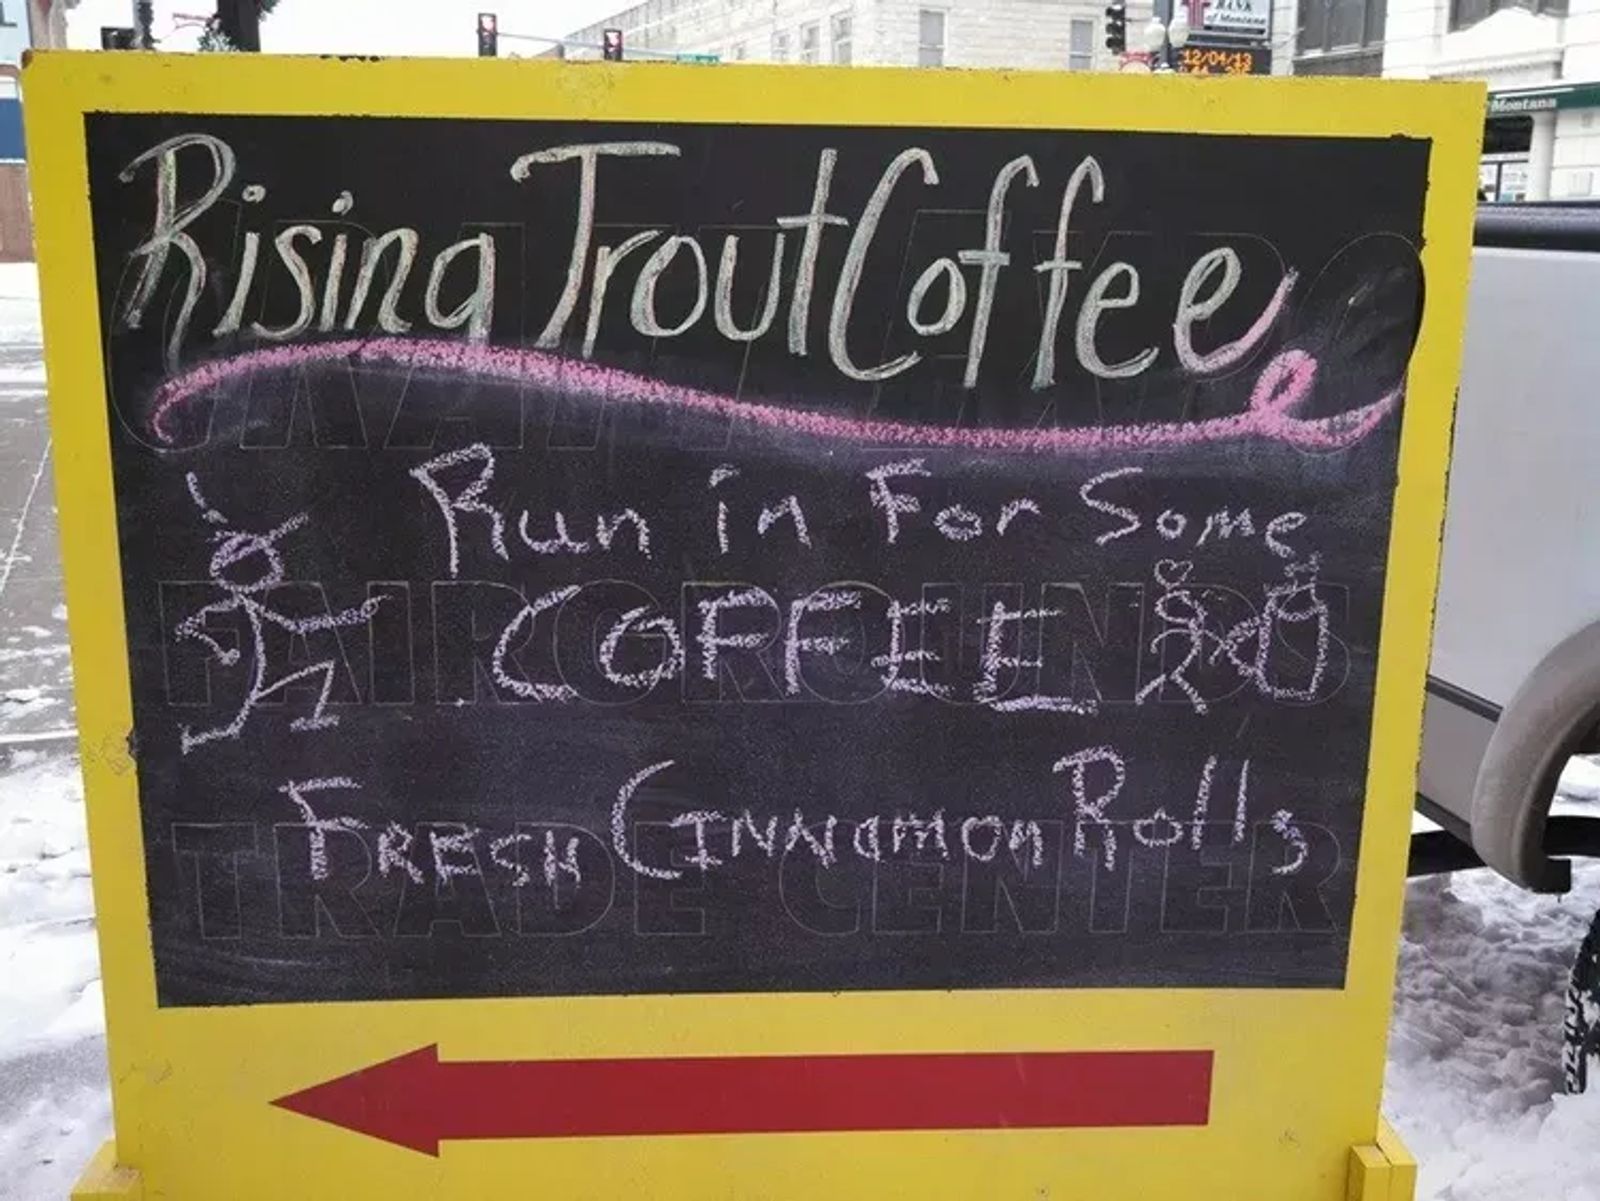 BANK
of Montana
12/04/13
Montana
Rising Trout Coffee
Run in For Some
COFFEE
FRESH CINNamon Rolls
CRAFT EXPO
FAIRGROUNDS
TRADE CENTER